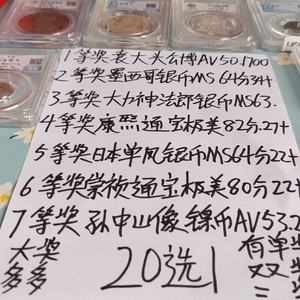 1等奖袁大头公博AV50.1700
2等奖墨西哥银币MS64分34+
3等奖大力神法郎银币MS63.
4等奖康熙通宝极美82分27+
5等奖日本单凤银币MS64分22+
6等奖崇祯通宝极美80分22+
7等奖孙中山像镍币AV53.2
大奖
多多
20选1
有单
双奖